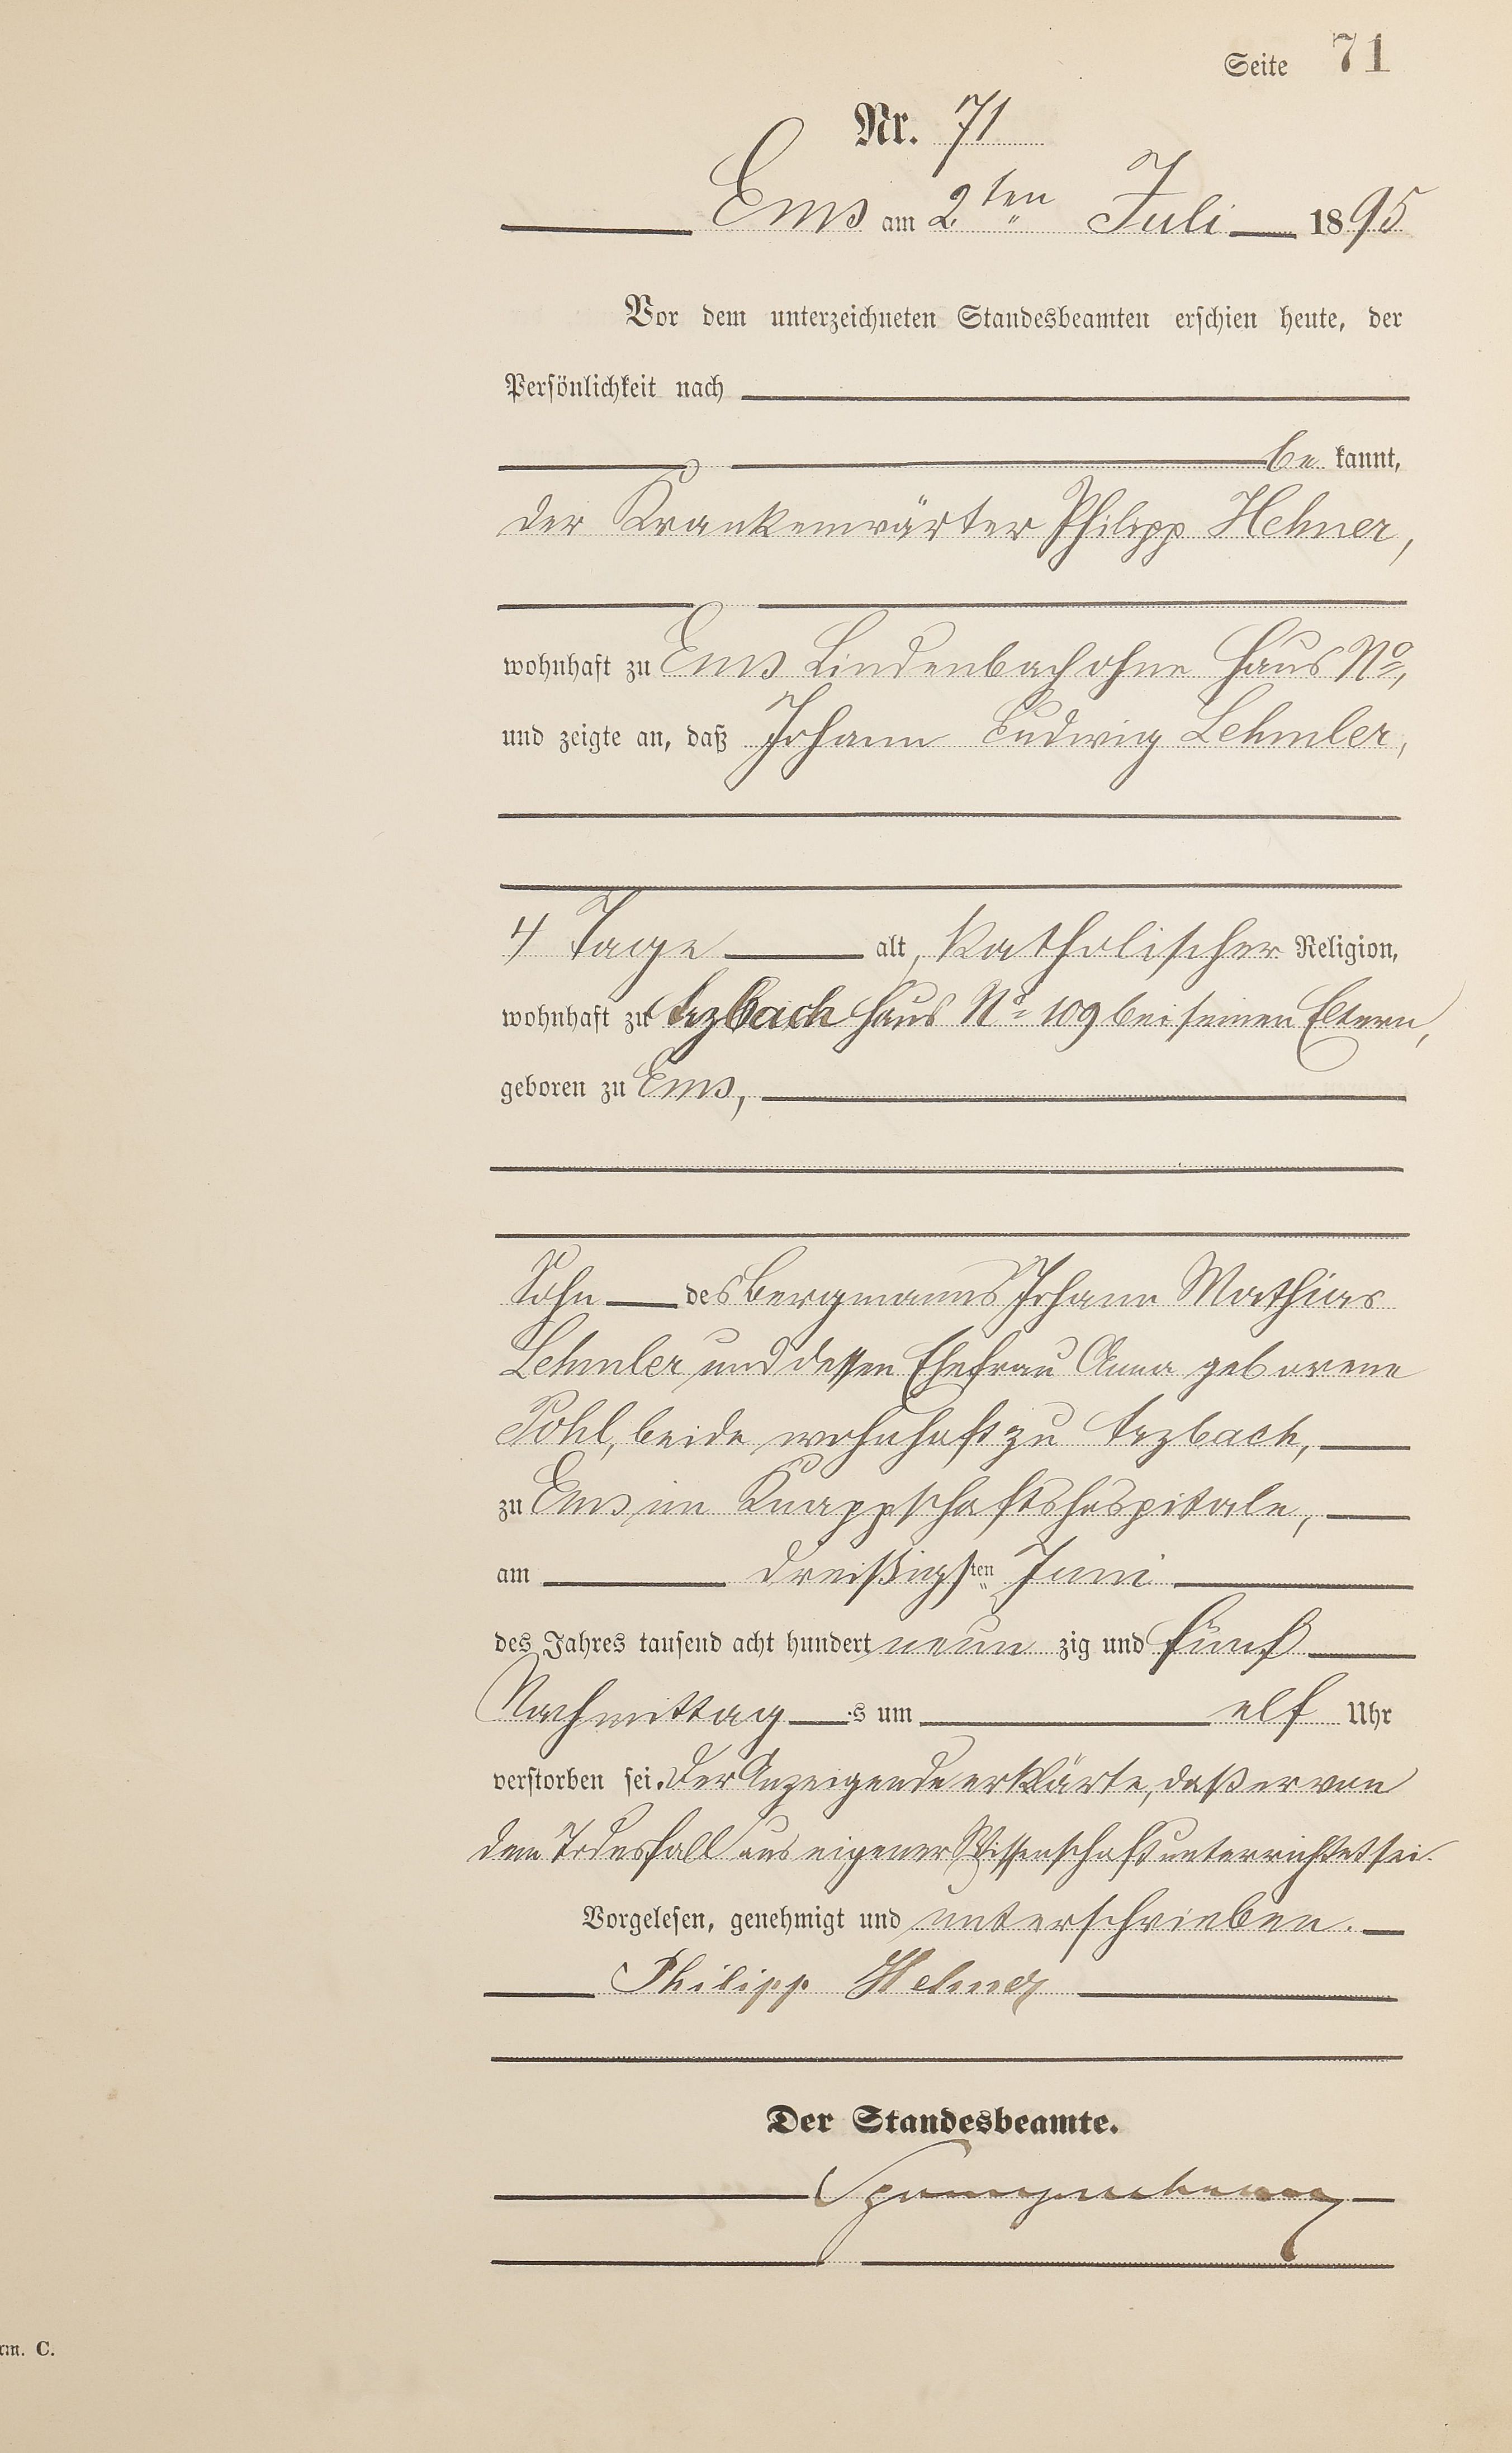 Seite 71
Nr. 71
Ems am 2ten Juli 1895
Vor dem unterzeichneten Standesbeamten erschien heute, der
Persönlichkeit nach
be kannt,
der Krankenwärter Philipp Hehner,
wohnhaft zu Ems Lindenbach ohne Haus No,
und zeigte an, daß Johann Ludwig Lehmler,
4 Tage alt, katholischer Religion,
wohnhaft zu Arzbach Haus No 109 bei seinen Eltern,
geboren zu Ems,
Sohn des Bergmanns Johann Mathias
Lehmler und dessen Ehefrau Anna geborene
Pohl, beide wohnhaft zu Arzbach,
zu Ems im Knappschaftshospitale,
am dreißigsten Juni
des Jahres tausend acht hundert neun zig und fünf
Nachmittag s um elf Uhr
verstorben sei. Der Anzeigende erklärte, daß er von
dem Todesfall aus eigener Wissenschaft unterrichtet sei.
Vorgelesen, genehmigt und unterschrieben.
Philipp Hehner
Der Standesbeamte.
rm. C.